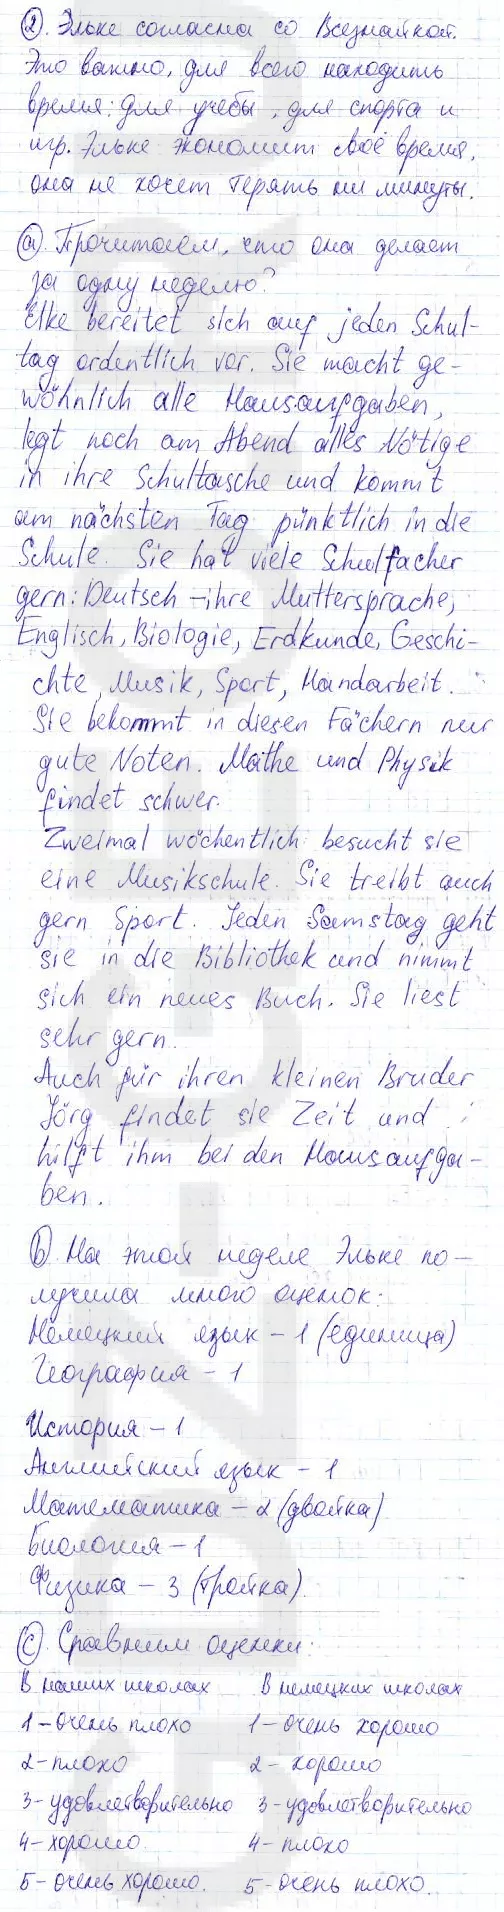 2. Эльке согласна со Всезнайкой.
Это важно, для всего находить
время: для учебы, для спорта и
игр. Эльке экономит своё время,
она не хочет терять ни минуты.
a). Прочитаем, что она делает
за одну неделю?
Elke bereitet sich auf jeden Schul-
tag ordentlich vor. Sie macht ge-
wöhnlich alle Hausaufgaben,
legt noch am Abend alles Nötige
in ihre Schultasche und kommt
am nächsten Tag pünktlich in die
Schule. Sie hat viele Schulfächer
gern: Deutsch – ihre Muttersprache,
Englisch, Biologie, Erdkunde, Geschi-
chte, Musik, Sport, Handarbeit.
Sie bekommt in diesen Fächern nur
gute Noten. Mathe und Physik
findet schwer.
Zweimal wöchentlich besucht sie
eine Musikschule. Sie treibt auch
gern Sport. Jeden Samstag geht
sie in die Bibliothek und nimmt
sich ein neues Buch. Sie liest
sehr gern.
Auch für ihren kleinen Bruder
Jörg findet sie Zeit und
hilft ihm bei den Hausaufga-
ben.
b) На этой неделе Эльке по-
лучила много оценок:
Немецкий язык – 1 (единица)
География – 1
История – 1
Английский язык – 1
Математика – 2 (двойка)
Биология – 1
Физика – 3 (тройка).
c). Сравним оценки:
В наших школах В немецких школах
1 – очень плохо 1 – очень хорошо
2 – плохо 2 – хорошо
3 – удовлетворительно 3 – удовлетворительно
4 – хорошо 4 – плохо
5 – очень хорошо. 5 – очень плохо.